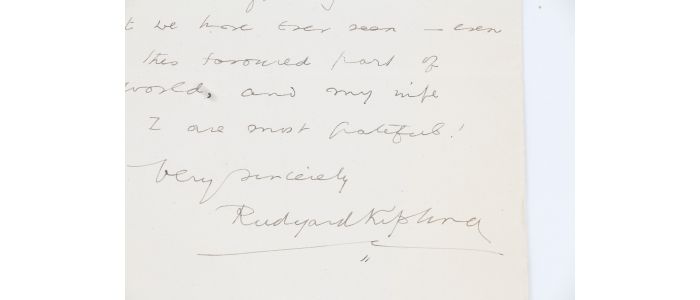 t we have ever seen — even
this favoured part of
world, and my wife
I are most grateful!
Very sincerely
Rudyard Kipling